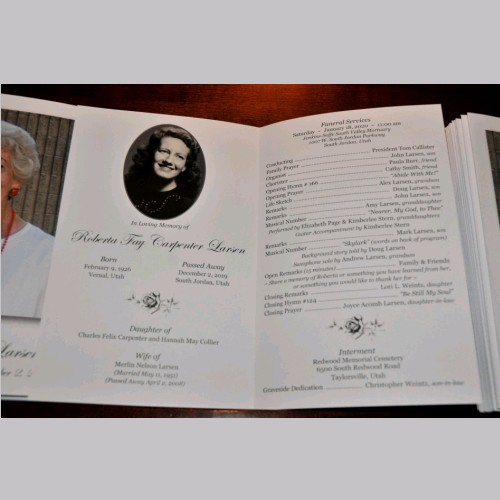 In Loving Memory of
Roberta Fay Carpenter Larsen
Born
February 9, 1926
Vernal, Utah
Passed Away
December 2, 2019
South Jordan, Utah
Daughter of
Charles Felix Carpenter and Hannah May Collier
Wife of
Merlin Nelson Larsen
(Married May 11, 1951)
(Passed Away April 2, 2008)
Larsen
Funeral Services
Saturday ~ January 18, 2020 ~ 11:00 am
Jenkins-Soffe South Valley Mortuary
1007 W. South Jordan Parkway
South Jordan, Utah
Conducting President Tom Callister
Family Prayer John Larsen, son
Organist Paula Burr, friend
Chorister Cathy Smith, friend
Opening Hymn # 166 "Abide With Me!"
Opening Prayer Alex Larsen, grandson
Life Sketch Doug Larsen, son
Remarks John Larsen, son
Remarks Amy Larsen, granddaughter
Musical Number "Nearer, My God, to Thee"
Performed by Elizabeth Page & Kimberlee Stern, granddaughters
Guitar Accompaniment by Kimberlee Stern
Remarks Mark Larsen, son
Musical Number "Skylark" (words on back of program)
Background story told by Doug Larsen
Saxophone solo by Andrew Larsen, grandson
Open Remarks (15 minutes) Family & Friends
~ Share a memory of Roberta or something you have learned from her,
or something you would like to thank her for ~
Closing Remarks Lori L. Weintz, daughter
Closing Hymn #124 "Be Still My Soul"
Closing Prayer Joyce Scomb Larsen, daughter-in-law
Interment
Redwood Memorial Cemetery
6500 South Redwood Road
Taylorsville, Utah
Graveside Dedication Christopher Weintz, son-in-law